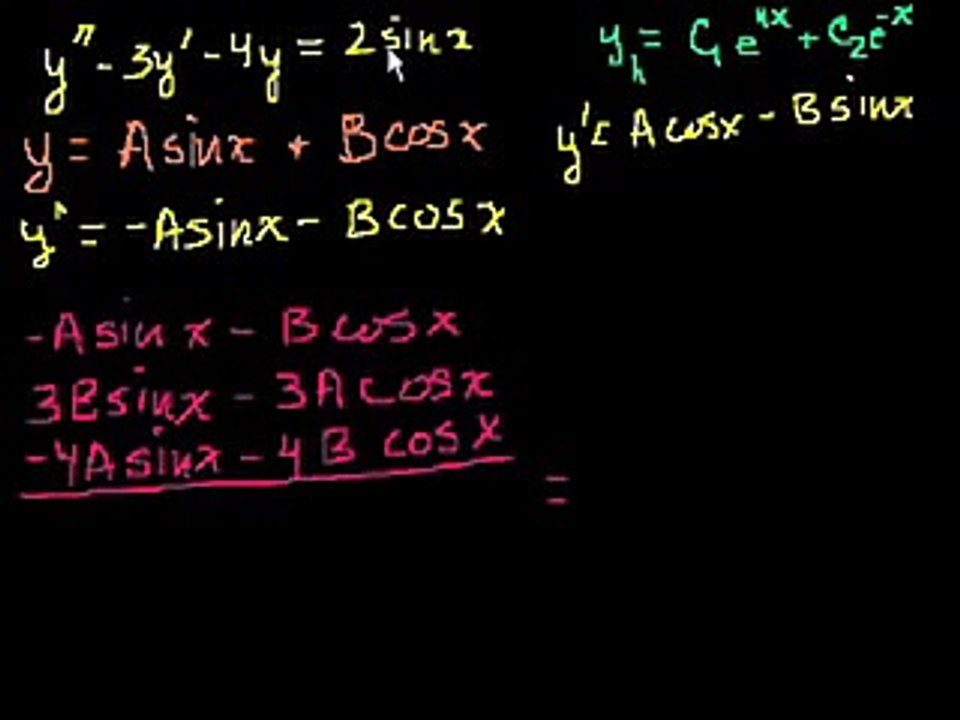 y'' - 3y' - 4y = 2 sin x
y_h = C₁ e^{4x} + C₂ e^{-x}
y = A sin x + B cos x
y' = A cos x - B sin x
y'' = -A sin x - B cos x
-A sin x - B cos x
3B sin x - 3A cos x
-4A sin x - 4B cos x
=